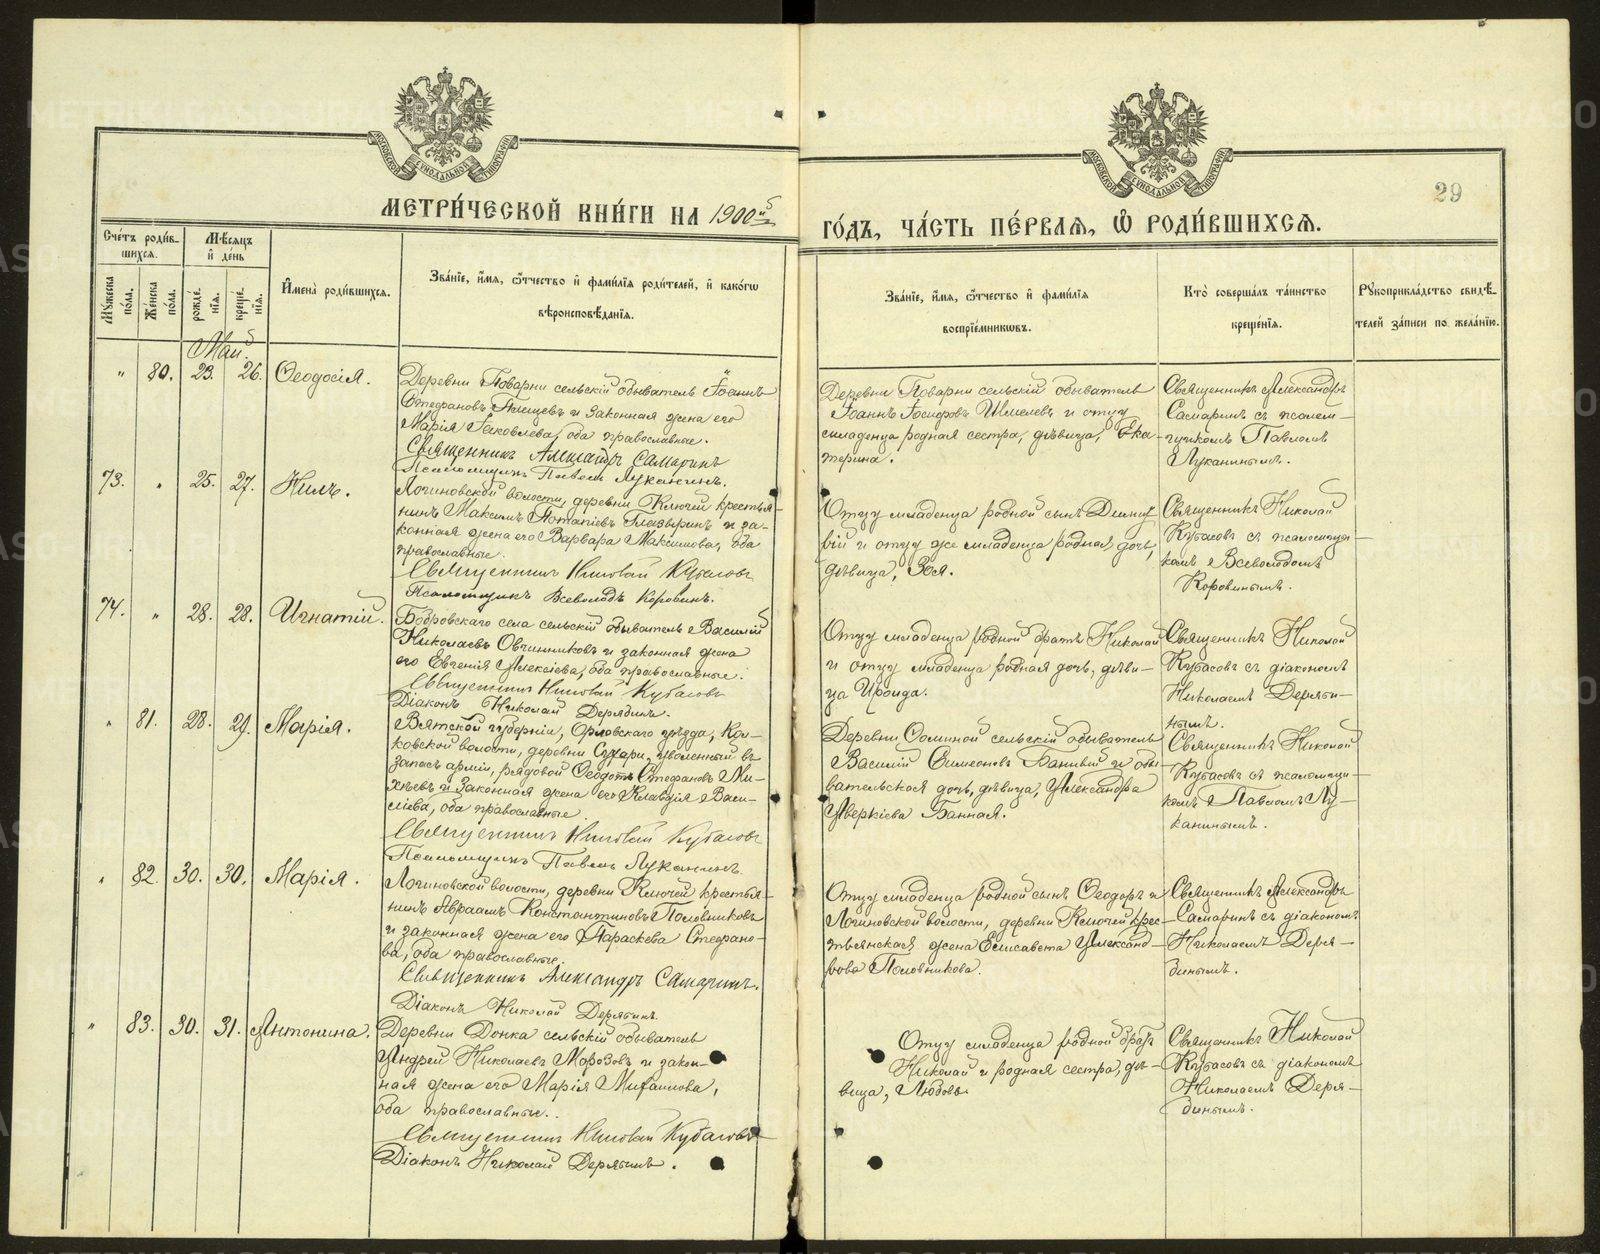 29
МЕТРИ́ЧЕСКОЙ КНИ́ГИ НА 1900ый
ГО́ДЪ, ЧА́СТЬ ПЕ́РВАЯ, Ѡ҆ РОДИ́ВШИХСЯ.
Сче́тъ роди́в-
шихся.
Мѣ́сяцъ
и҆ день
Му́жеска по́ла.
Же́нска по́ла.
рожде́нїя.
креще́нїя.
И҆мена̀ роди́вшихся.
Зва́нїе, и҆́мя, ѻ҆́тчество и҆ фами́лїя роди́телей, и҆ како́гѡ
вѣроисповѣ́данїя.
Зва́нїе, и҆́мя, ѻ҆́тчество и҆ фами́лїя
воспрїе́мниковъ.
Кто̀ соверша́лъ та́инство
креще́нїя.
Рꙋкоприкла́дство свидѣ́-
телей за́писи по жела́нїю.
Май.
" 80. 23. 26. Ѳеодосія.
Деревни Поварни сельскій обыватель Іоаннъ
Стефановъ Плещевъ и законная жена его
Марія Іаковлева, оба православные.
Священникъ Александръ Самаринъ
Псаломщикъ Павелъ Луканинъ.
Деревни Поварни сельскій обыватель
Іоаннъ Іосифовъ Шмелевъ и отцу
младенца родная сестра, дѣвица, Ека-
терина.
Священникъ Александръ
Самаринъ съ псалом-
щикомъ Павломъ
Луканинымъ.
73. " 25. 27. Нилъ.
Логиновской волости, деревни Ключей крестья-
нинъ Максимъ Потапіевъ Глазыринъ и за-
конная жена его Варвара Максимова, оба
православные.
Священникъ Николай Кубасовъ
Псаломщикъ Всеволодъ Коровинъ.
Отцу младенца родной сынъ Димит-
рій и отцу же младенца родная дочь,
дѣвица, Зоя.
Священникъ Николай
Кубасовъ съ псаломщи-
комъ Всеволодомъ
Коровинымъ.
74. " 28. 28. Игнатій.
Бобровскаго села сельскій обыватель Василій
Николаевъ Овчинниковъ и законная жена
его Евгенія Алексіева, оба православные.
Священникъ Николай Кубасовъ
Діаконъ Николай Дерябинъ.
Отцу младенца родной братъ Николай
и отцу младенца родная дочь, дѣви-
ца Ираида.
Священникъ Николай
Кубасовъ съ діакономъ
Николаемъ Деряби-
нымъ.
" 81. 28. 29. Марія.
Вятской губерніи, Орловскаго уѣзда, Кол-
ковской волости, деревни Сухари, уволенный въ
запасъ арміи, рядовой Ѳеодотъ Стефановъ Ми-
хѣевъ и законная жена его Клавдія Васи-
ліева, оба православные.
Священникъ Николай Кубасовъ
Псаломщикъ Павелъ Луканинъ.
Деревни Соминой сельскій обыватель
Василій Симеоновъ Банный и обы-
вательская дочь, дѣвица, Александра
Аверкіева Банная.
Священникъ Николай
Кубасовъ съ псаломщи-
комъ Павломъ Лу-
канинымъ.
" 82. 30. 30. Марія.
Логиновской волости, деревни Ключей крестья-
нинъ Авраамъ Константиновъ Половниковъ
и законная жена его Параскева Стефано-
ва, оба православные.
Священникъ Александръ Самаринъ.
Діаконъ Николай Дерябинъ.
Отцу младенца родной сынъ Ѳеодоръ и
Логиновской волости, деревни Ключей крес-
тьянская жена Елисавета Александ-
рова Половникова.
Священникъ Александръ
Самаринъ съ діакономъ
Николаемъ Деря-
бинымъ.
" 83. 30. 31. Антонина.
Деревни Донка сельскій обыватель
Андрей Николаевъ Морозовъ и закон-
ная жена его Марія Михаилова,
оба православные.
Священникъ Николай Кубасовъ
Діаконъ Николай Дерябинъ.
Отцу младенца родной братъ
Николай и родная сестра, дѣ-
вица, Любовь.
Священникъ Николай
Кубасовъ съ діакономъ
Николаемъ Деря-
бинымъ.